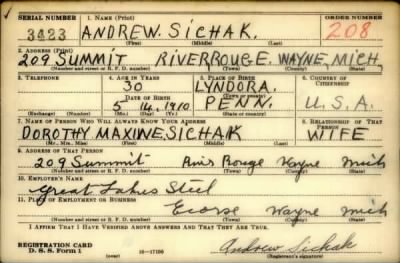 SERIAL NUMBER 1. NAME (Print) ORDER NUMBER
3423 ANDREW. SICHAK. 208
(First) (Middle) (Last)
2. ADDRESS (Print)
209 SUMMIT RIVERROUGE. WAYNE, MICH,
(Number and street or R. F. D. number) (Town) (County) (State)
3. TELEPHONE 4. AGE IN YEARS 5. PLACE OF BIRTH 6. COUNTRY OF CITIZENSHIP
30 LYNDORA.
DATE OF BIRTH (Town or county)
5 14, 1910 PENN. U.S.A.
(Exchange) (Number) (Mo.) (Day) (Yr.) (State or country)
7. NAME OF PERSON WHO WILL ALWAYS KNOW YOUR ADDRESS 8. RELATIONSHIP OF THAT PERSON
DOROTHY MAXINE. SICHAK WIFE
(Mr., Mrs., Miss) (First) (Middle) (Last)
9. ADDRESS OF THAT PERSON
209 Summit Rouge Wayne Mich
(Number and street or R. F. D. number) (Town) (County) (State)
10. EMPLOYER'S NAME
Great Lakes Steel
11. PLACE OF EMPLOYMENT OR BUSINESS
Ecorse Wayne Mich
(Number and street or R. F. D. number) (Town) (County) (State)
I AFFIRM THAT I HAVE VERIFIED ABOVE ANSWERS AND THAT THEY ARE TRUE.
REGISTRATION CARD
D. S. S. Form 1 16—17105 Andrew Sichak
(Registrant's signature)